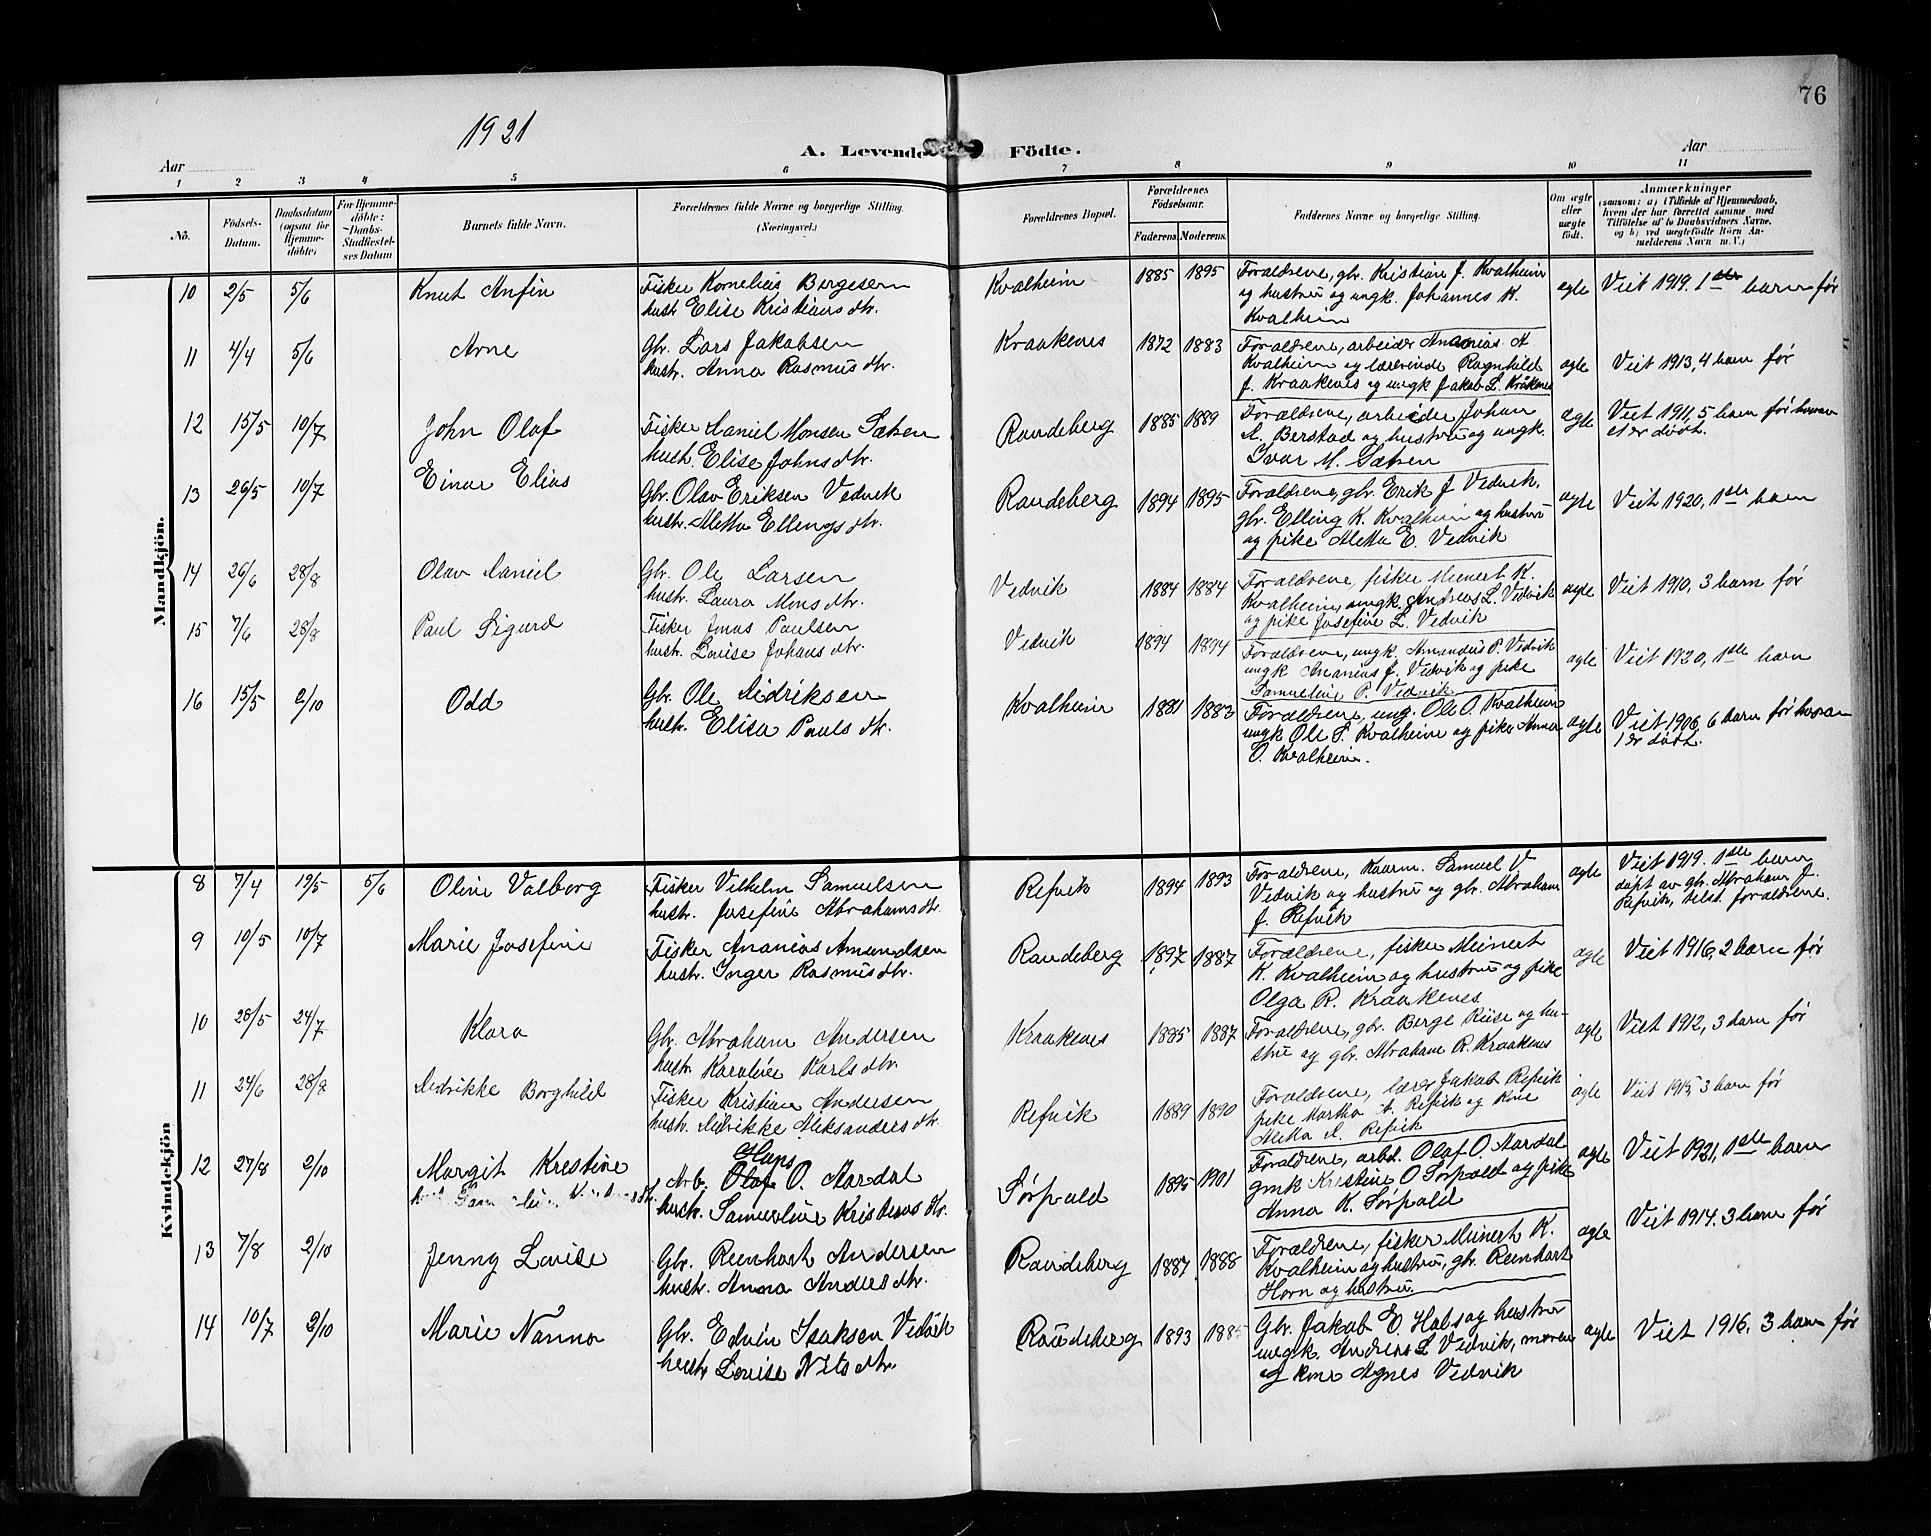 76
1921
A. Levende Födte.
Aar
Aar
1 2 3 4 5 6 7 8 9 10 11
No.
Födsels-
Datum.
Daabsdatum
(ogsaa for
Hjemme-
döbte)
For Hjemme-
döbte:
Daabs-
Stadfæstel-
ses Datum
Barnets fulde Navn.
Forældrenes fulde Navne og borgerlige Stilling.
(Næringsvei.)
Forældrenes Bopæl.
Forældrenes
Födselsaar.
Faderens. Moderens.
Faddernes Navne og borgerlige Stilling.
Om ægte
eller
uægte
födt.
Anmærkninger
(saasom: a) i Tilfælde af Hjemmedaab,
hvem der har forrettet samme, med
Tilföielse af to Daabsvidners Navne,
og b) ved uægtefödte Börn An-
melderens Navn m. V.)
Mandkjön.
10 2/5 5/6 Knut Anfin Fisker Kornelius Bergesen Kvalheim 1885 1895 Forældrene, gbr. Kristian J. Kvalheim ægte Viet 1919. 1ste barn før
hustr. Elise Kristians dtr. og hustru og ungk. Johannes K.
Kvalheim
11 4/4 5/6 Arne Gbr. Lars Jakobsen Kraakenes 1872 1883 Forældrene, arbeider Ananias A. ægte Viet 1913, 4 barn før
hustr. Anna Rasmus dtr. Kvalheim og lærerinde Ragnhild
J. Kraakenes og ungk Jakob L. Kråkenes
12 15/5 10/7 John Olaf Fisker Daniel Monsen Sætren Raudeberg 1885 1889 Forældrene, arbeider Johan ægte Viet 1911, 5 barn før hvorav
hustr. Elise Johns dtr. A. Berstad og hustru og ungk. et er dødt.
Ivar M. Sætren
13 26/5 10/7 Einar Elias Gbr. Olav Eriksen Vedvik Raudeberg 1894 1895 Forældrene, gbr. Erik J. Vedvik, ægte Viet 1920, 1ste barn
hustr. Aletta Ellings dtr. gbr. Elling K. Kvalheim og hustru
og pike Aletta E. Vedvik
14 26/6 28/8 Olav Daniel Gbr. Ole Larsen Vedvik 1884 1884 Forældrene, fisker Meinert K. ægte Viet 1910, 3 barn før
hustr. Laura Mons dtr. Kvalheim, ungk. Andreas L. Vedvik
og pike Josefine L. Vedvik
15 7/6 28/8 Paul Sigurd Fisker Jonas Paulsen Vedvik 1894 1894 Forældrene, ungk. Amandus P. Vedvik ægte Viet 1920, 1ste barn
hustr. Louise Johans dtr. ungk Ananias J. Vedvik og pike
Samueline P. Vedvik
16 15/5 2/10 Odd Gbr. Ole Didriksen Kvalheim 1881 1882 Forældrene, ung. Ole O. Kvalheim ægte Viet 1906, 6 barn før hvorav
hustr. Elisa Pauls dtr. ungk Ole S. Kvalheim og pike Anna 1 er dødt.
O. Kvalheim.
Kvindekjön
8 7/4 19/5 5/6 Oline Valborg Fisker Vilhelm Samuelsen Refvik 1894 1893 Forældrene, Kaarm. Samuel V. ægte Viet 1919. 1ste barn
hustr. Josefine Abrahams dtr. Vedvik og hustru og gbr. Abraham døpt av gbr. Abraham J.
J. Refvik Refvik, tilst. forældrene.
9 10/5 10/7 Marie Josefine Fisker Ananias Amundsen Raudeberg 1897 1887 Forældrene, fisker Meinert ægte Viet 1916, 2 barn før
hustr. Inger Rasmus dtr. K. Kvalheim og hustru og pike
Olga R. Kraakenes
10 28/5 24/7 Klara Gbr. Abraham Andersen Kraakenes 1885 1887 Forældrene, gbr. Berge Riise og hu- ægte Viet 1912, 3 barn før
hustr. Karoline Karls dtr. stru og gbr. Abraham R. Kraakenes
11 24/6 28/8 Didrikke Borghild Fisker Kristian Andersen Refvik 1889 1890 Forældrene, lærer Jakob Refvik ægte Viet 1915, 3 barn før
hustr. Didrikke Aleksanders dtr. pike Martha A. Refvik og kone
Aletta A. Refvik
12 27/8 2/10 Margit Kristine Arb. Olaf O. Aardal Sørpvald 1895 1901 Forældrene, arbd. Olaf O. Aardal ægte Viet 1921, 1ste barn
Hans
hustr. Samueline Kristens dtr. gmk Kristine O Sørpvald og pike
Anna K. Sørpvald
13 7/8 2/10 Jenny Lovise Gbr. Reinhart Andersen Raudeberg 1887 1888 Forældrene, fisker Meinert K. ægte Viet 1914. 3 barn før
hustr. Anna Anders dtr. Kvalheim og hustru, gbr. Reinhart
Horn og hustru
14 10/7 2/10 Marie Nanna Gbr. Edvin Isaksen Vedvik Raudeberg 1893 Gbr. Jakob E. Hals og hustru ægte Viet 1916, 3 barn før
hustr Louise Nils dtr. ungk. Andreas L Vedvik, moren
og kone Agnes Vedvik